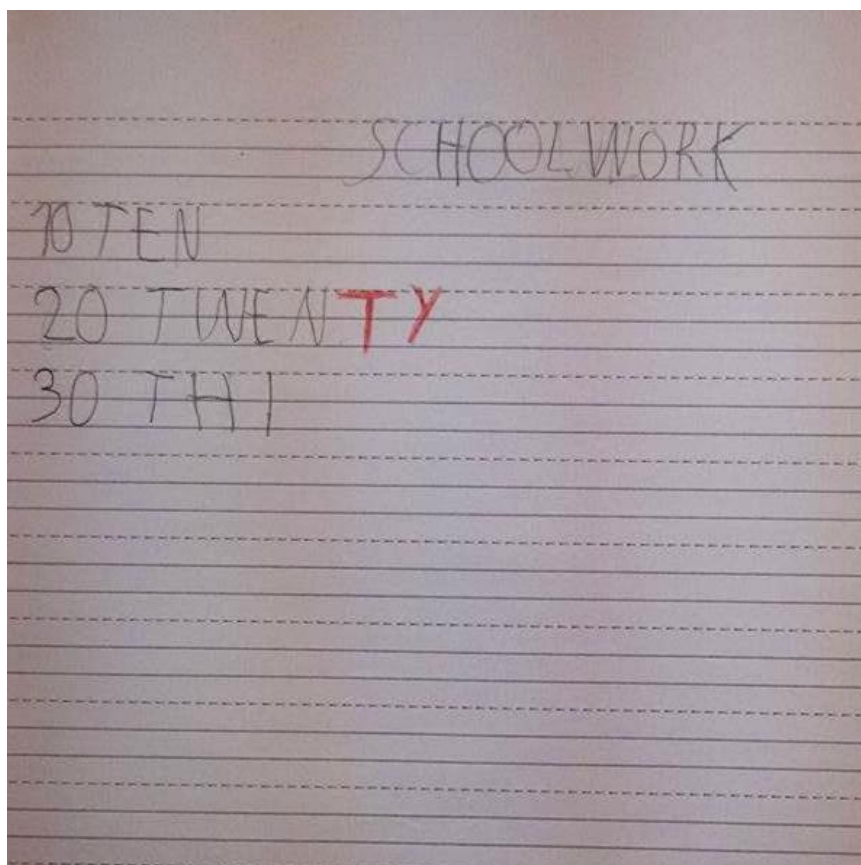 SCHOOLWORK
10 TEN
20 TWENTY
30 THI